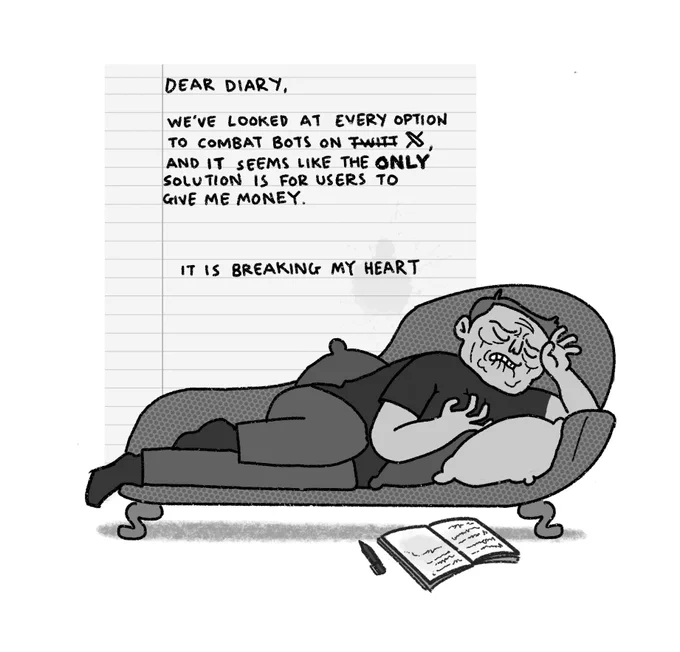 DEAR DIARY,
WE'VE LOOKED AT EVERY OPTION
TO COMBAT BOTS ON TWITT X,
AND IT SEEMS LIKE THE ONLY
SOLUTION IS FOR USERS TO
GIVE ME MONEY.
IT IS BREAKING MY HEART